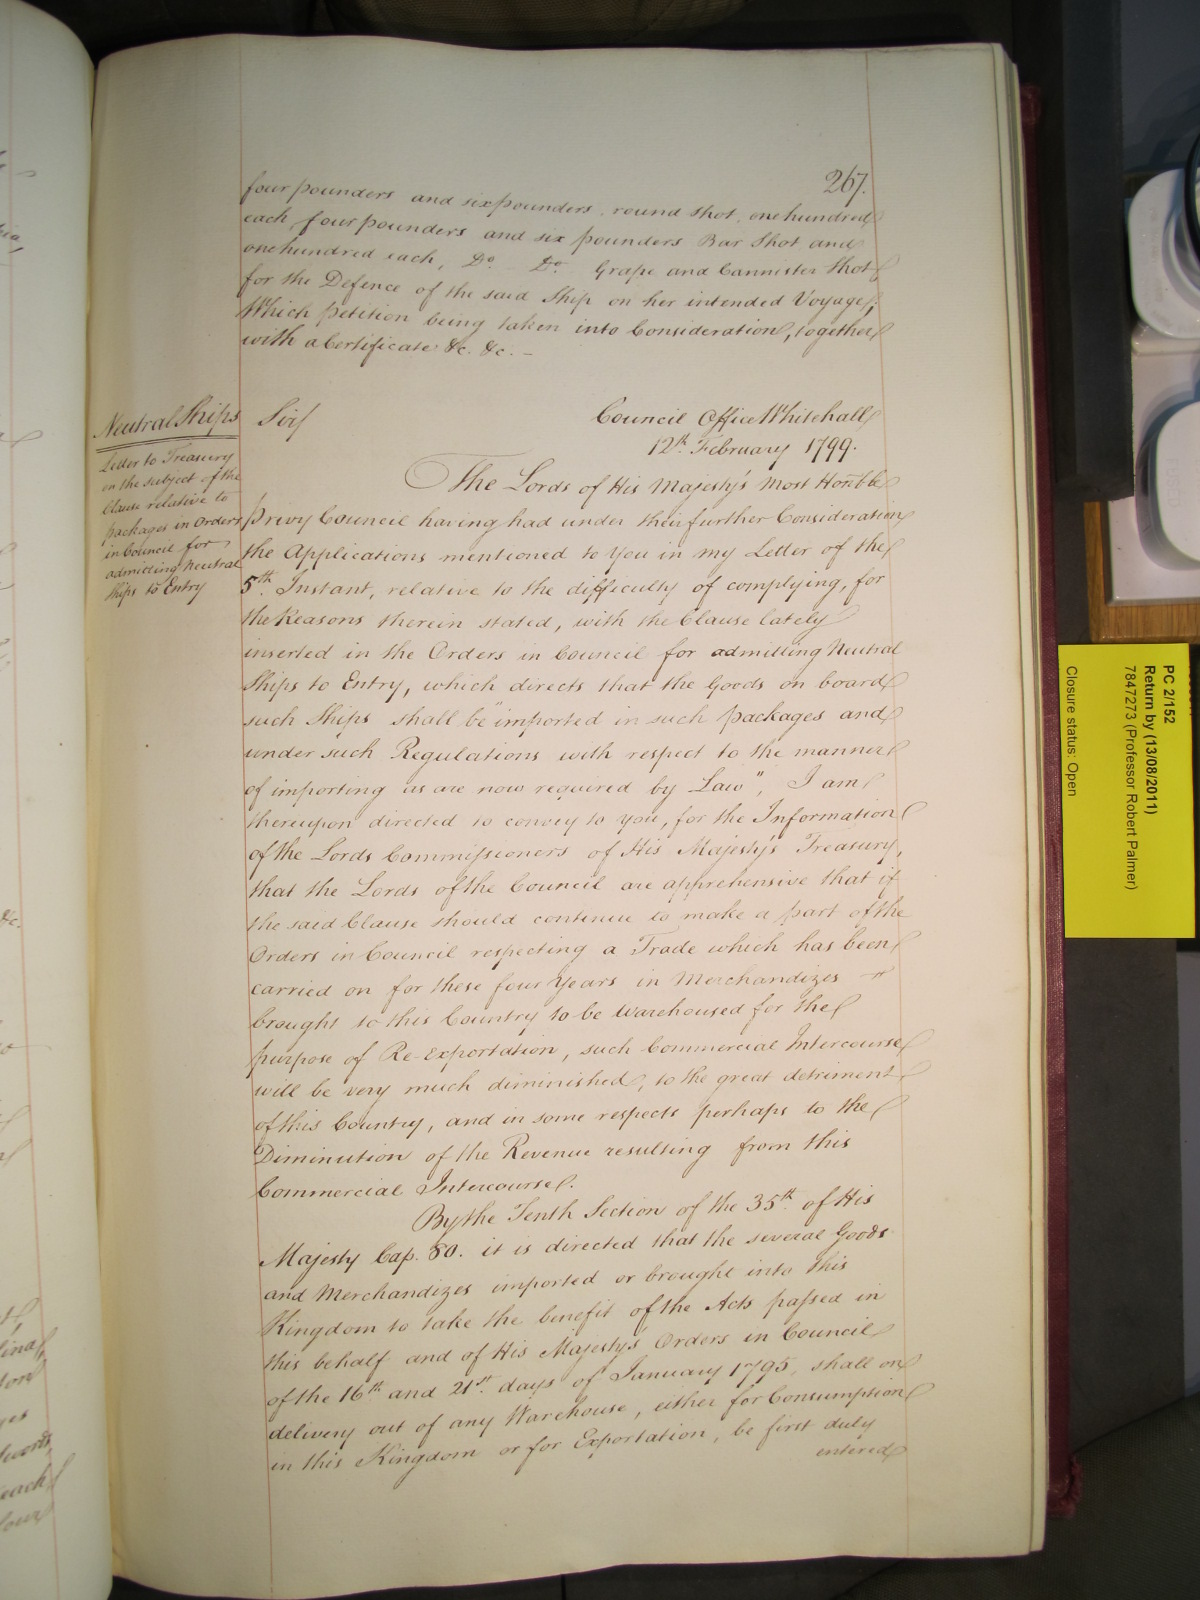 267.
four pounders and six pounders, round shot, one hundred
each four pounders and six pounders Bar Shot and
one hundred each, Do. Do. Grape and Cannister Shot
for the Defence of the said Ship on her intended Voyage;
Which petition being taken into Consideration, together
with a Certificate &c. &c. –
Neutral Ships
Letter to Treasury
on the subject of the
Clause relative to
packages in Orders
in Council for
admitting Neutral
Ships to Entry
Sir
Council Office Whitehall
12th February 1799.
The Lords of His Majesty's Most Honble
Privy Council having had under their further Consideration
the Applications mentioned to you in my Letter of the
5th Instant, relative to the difficulty of complying, for
the Reasons therein stated, with the Clause lately
inserted in the Orders in Council for admitting Neutral
Ships to Entry, which directs that the Goods on board
such Ships shall be "imported in such packages and
under such Regulations with respect to the manner
of importing as are now required by Law", I am
thereupon directed to convey to you, for the Information
of the Lords Commissioners of His Majesty's Treasury,
that the Lords of the Council are apprehensive that if
the said Clause should continue to make a part of the
Orders in Council respecting a Trade which has been
carried on for these four Years in Merchandizes
brought to this Country to be Warehoused for the
purpose of Re-Exportation, such Commercial Intercourse
will be very much diminished, to the great detriment
of this Country, and in some respects perhaps to the
Diminution of the Revenue resulting from this
Commercial Intercourse.
By the Tenth Section of the 35th of His
Majesty Cap. 80. it is directed that the several Goods
and Merchandizes imported or brought into this
Kingdom to take the benefit of the Acts passed in
this behalf and of His Majesty's Orders in Council
of the 16th and 21st days of January 1795, shall on
delivery out of any Warehouse, either for Consumption
in this Kingdom or for Exportation, be first duly
entered
PC 2/152
Return by (13/08/2011)
7847273 (Professor Robert Palmer)
Closure status: Open